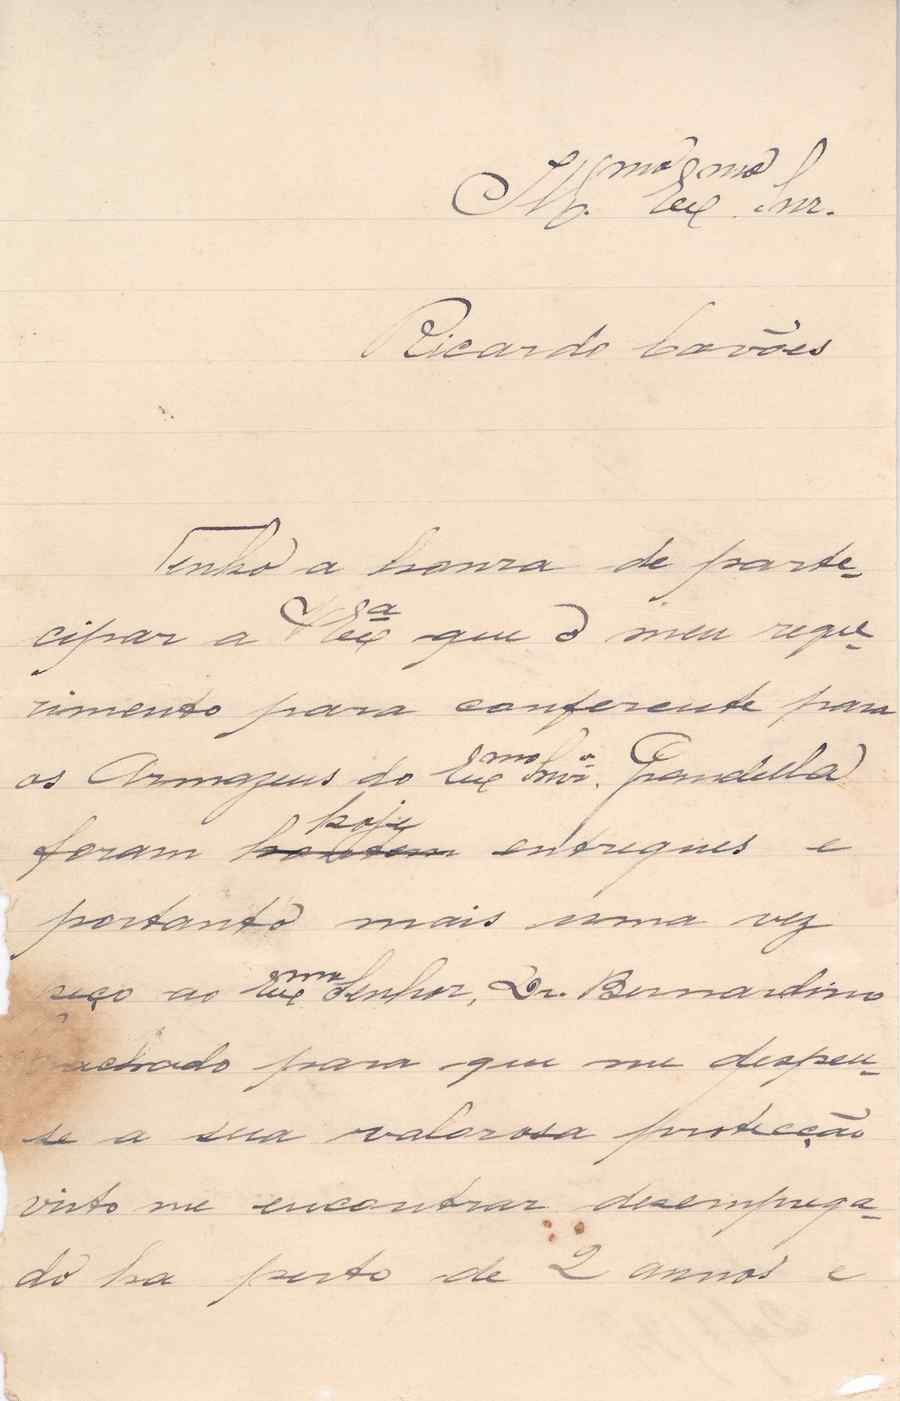 Ill.mo Exmo Snr.
Ricardo Covões
Tenho a honra de parte-
cipar a V Exª que o meu reque-
rimento para conferente para
os Armazens do Exmo Snr. Grandella
foram hoje hontem entregues e
portanto mais uma vez
peço ao Exmo Senhor, Dr. Bernardino
Machado para que me despen-
se a sua valorosa protecção
visto me encontrar desemprega-
do ha perto de 2 annos e